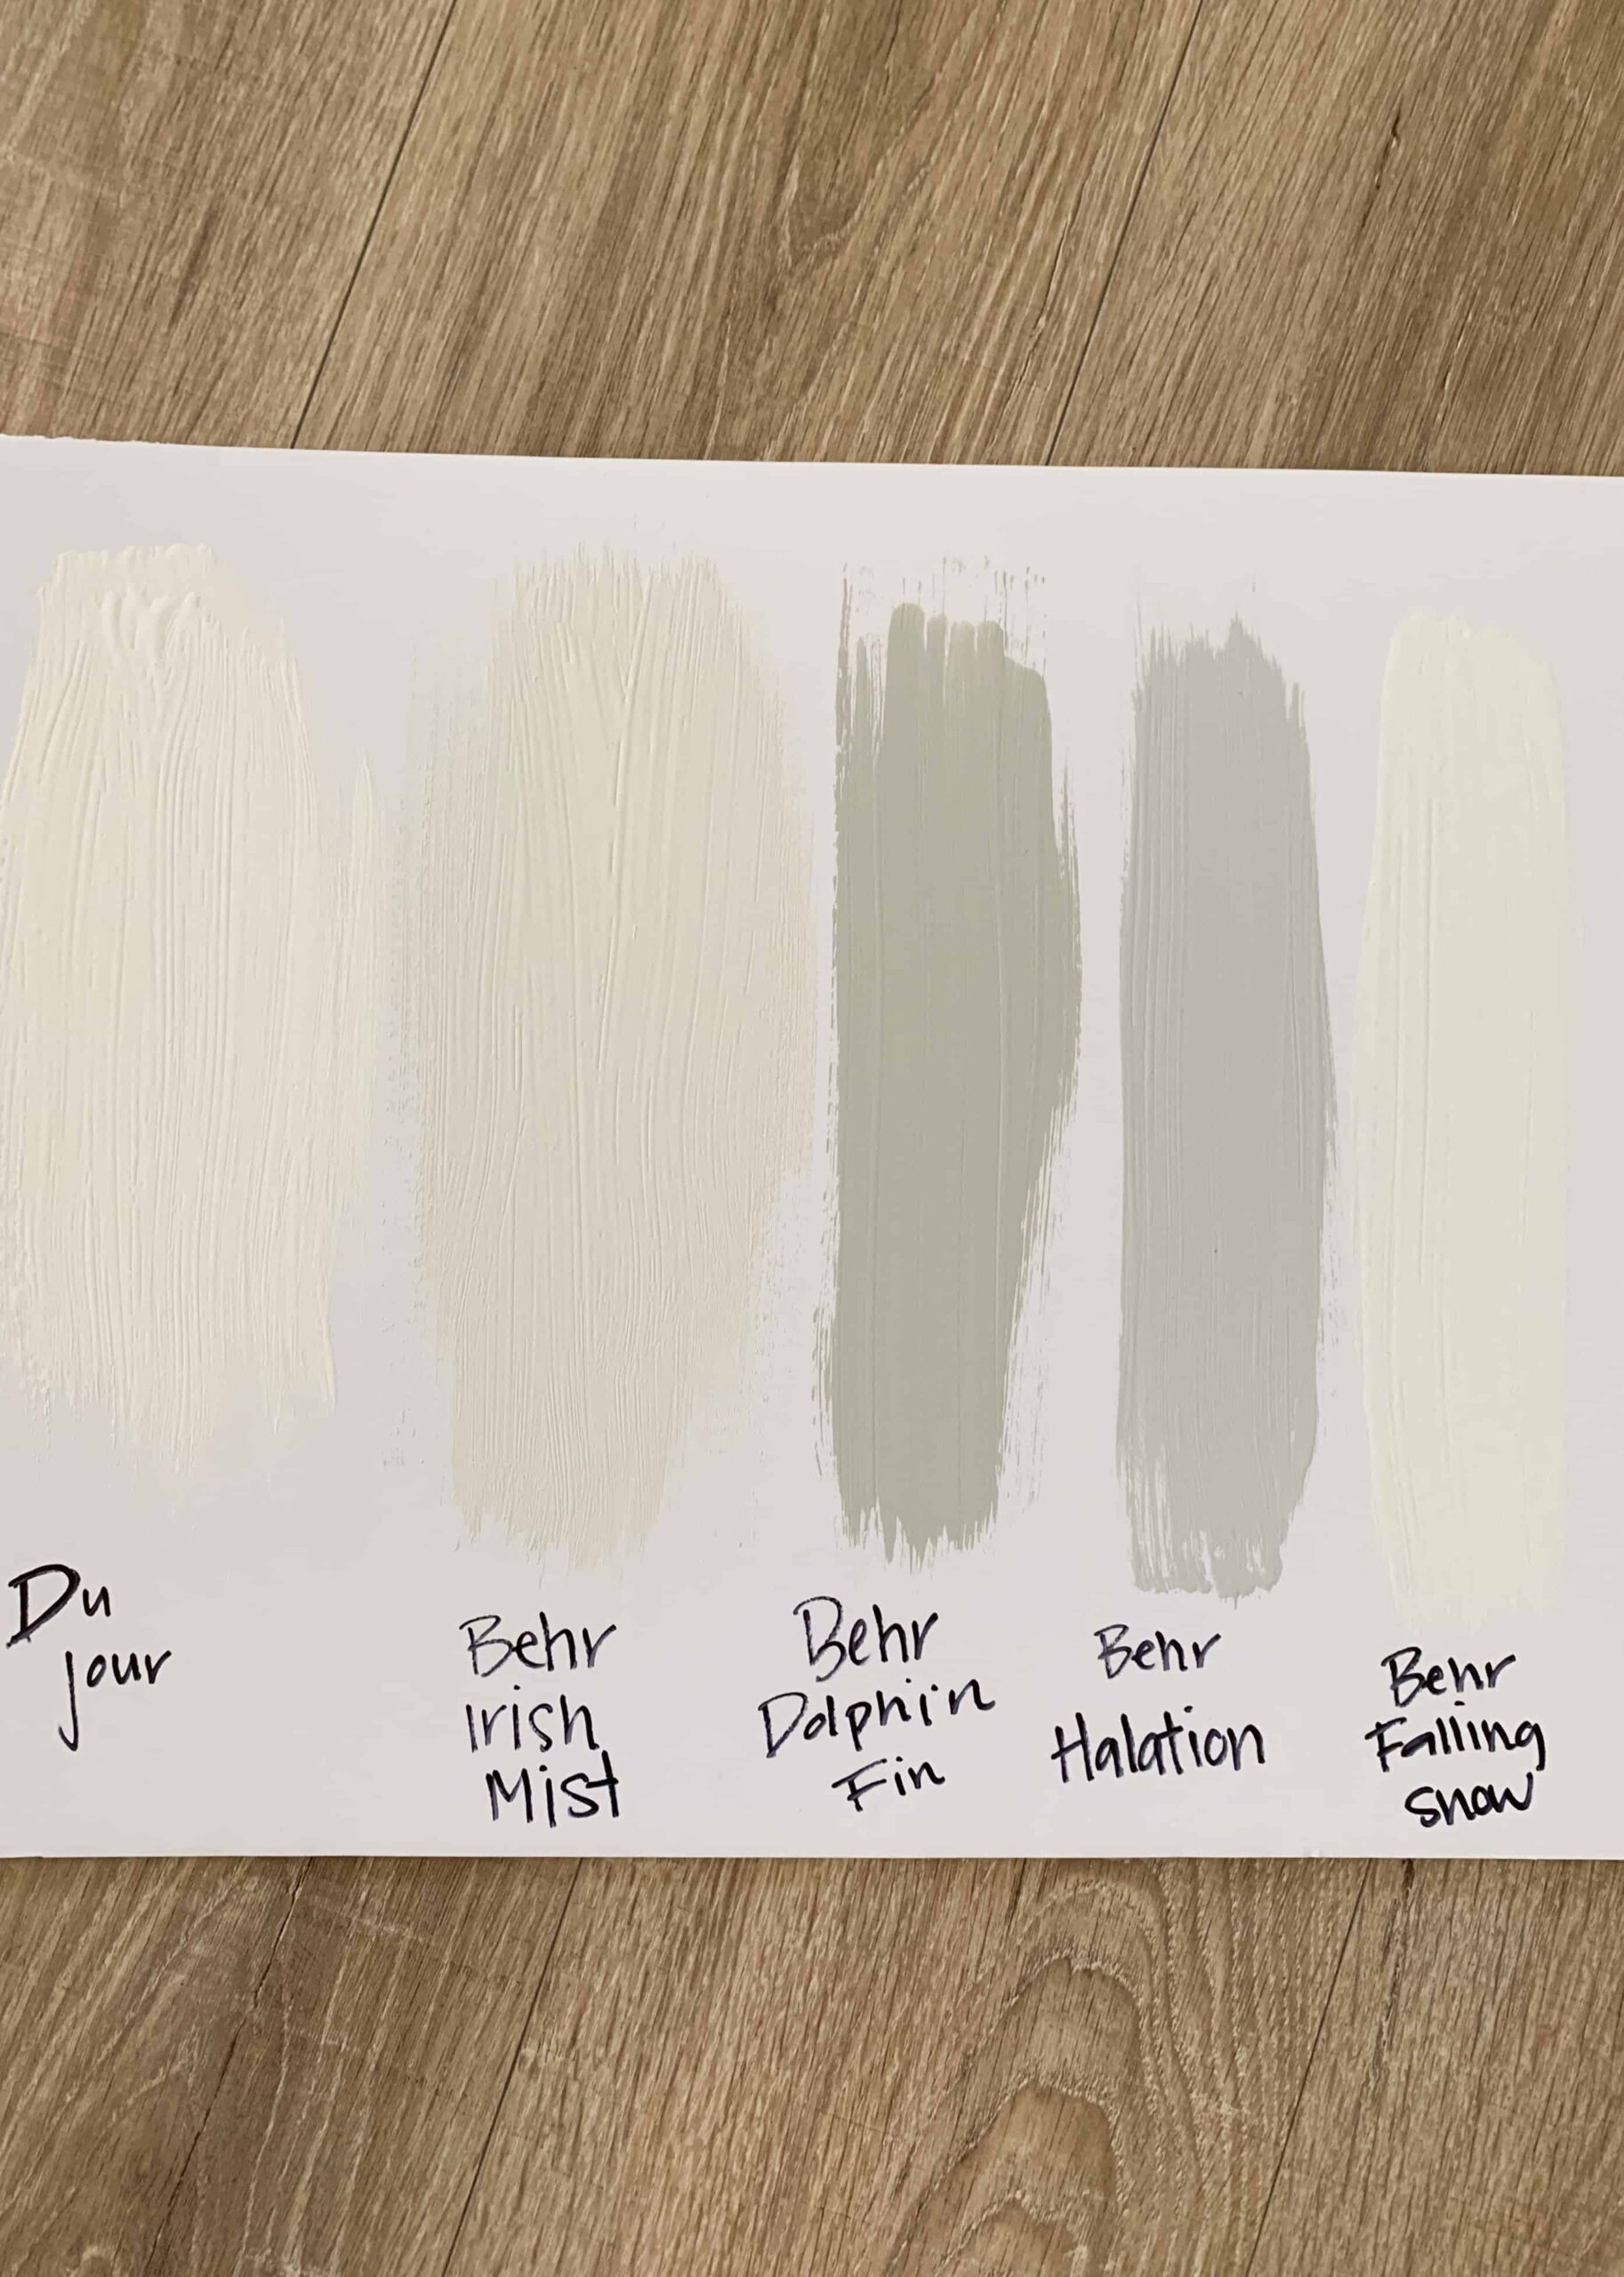 Du
jour
Behr
Irish
Mist
Behr
Dolphin
Fin
Behr
Halation
Behr
Falling
snow